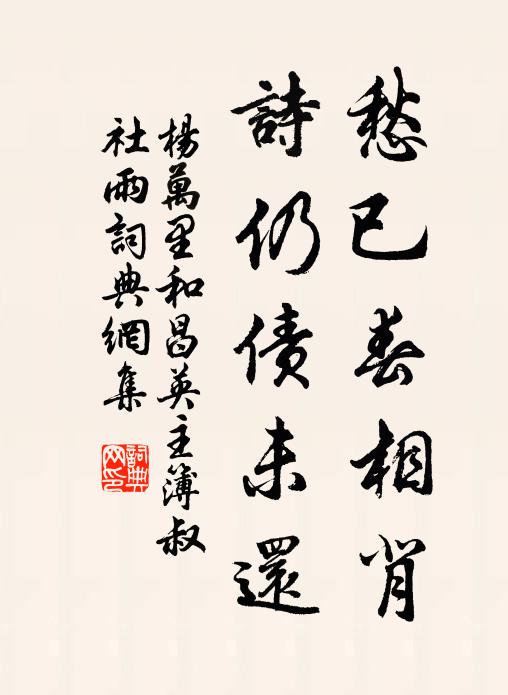 愁已春相背
詩仍債未還
楊萬里和昌英主簿叔
社雨詞典網集
詞典网印